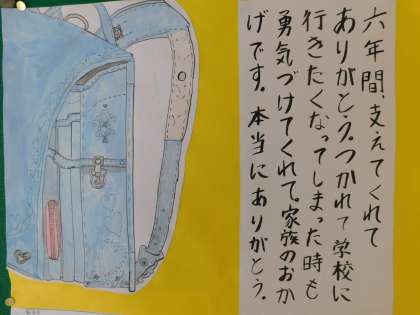 六年間、支えてくれて
ありがとう。つかれて学校に
行きたくなってしまった時も
勇気づけてくれて。家族のおか
げです。本当にありがとう。